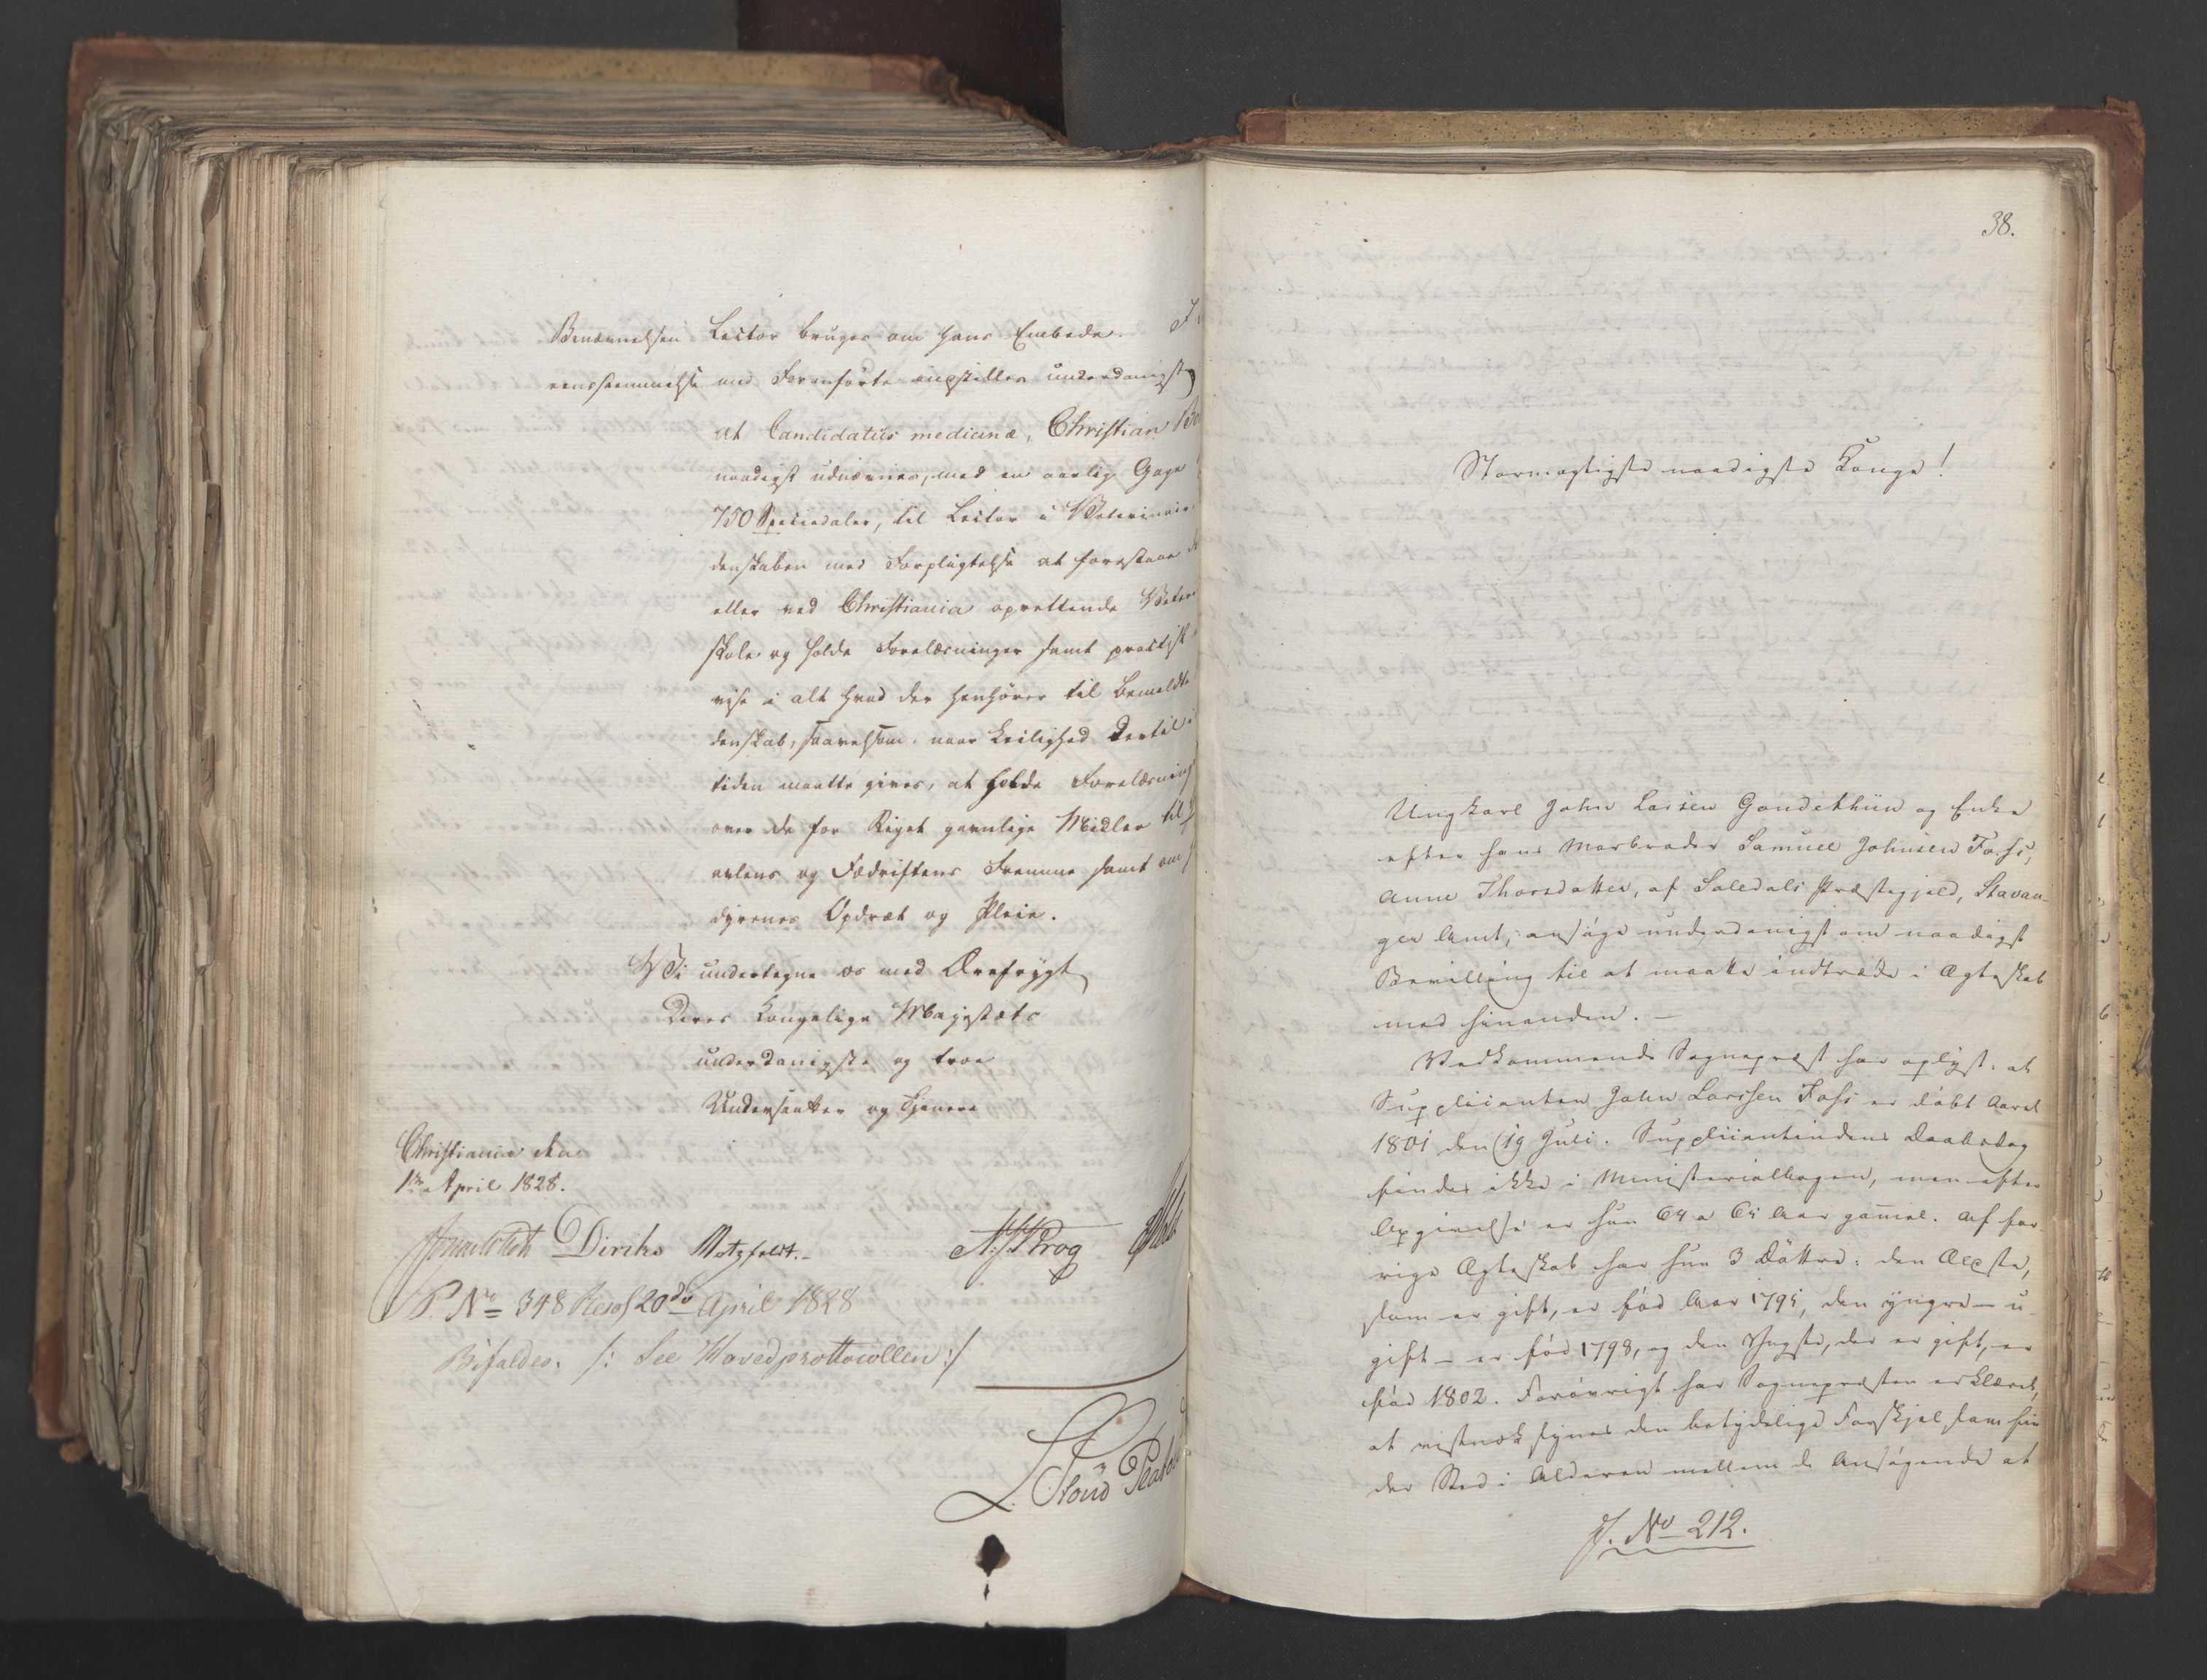 Benævnelsen Lector bruges om hans Embede.
eensstemmelse med Foranførte indstilles underdanigst
at Candidatus medicinæ, Christian
naadigst udnævnes, med en aarlig Gage
750 Speciedaler, til Lector i Veterinair
denskaben med Forpligtelse at forestaae
eller ved Christiania oprettende Veter
skole og holde Forelæsninger samt practisk
vise i alt hvad der henhører til bemeldte
denskab, saavelsom, naar Leilighed dertil i
tiden maatte gives, at holde Forelæsning
over de for Riget gavnlige Midler til
avlens og Fædriftens Fremme samt om
dyrenes Opdræt og Pleie.
Vi undertegne os med Ærefrygt
Deres Kongelige Majestæts
underdanigste og troe
Undersaatter og Tjenere
Christiania den
1ste April 1828.
Diriks Motzfeldt. Krog
P. No 348 Resol 20de April 1828
Bifaldes. /: See Hovedprottocollen :/
38.
Stormægtigste naadigste Konge!
Ungkarl John Larsen Gondethun og Enke
efter hans Morbroder Samuel Johnsen Foss,
Anne Thorsdatter, af Suledals Præstegjeld, Stavan-
ger Amt, ansøge underdanigst om naadigst
Bevilling til at maatte indtræde i Ægteskab
med hinanden. —
Vedkommende Sognepræst har oplyst, at
Supplicanten John Larssen Foss er døbt Aaret
1801 den 19 Juli. Supplicantindens Daabsdag
findes ikke i Ministerialbogen, men efter
Opgivelse er hun 64 a 65 Aar gam̄el. Af for-
rige Ægteskab har hun 3 Døttre: den Ælste,
som er gift, er fød Aar 1795, den yngre — u-
gift — er fød 1798, og den Yngste, der er gift, er
fød 1802. Forøvrigt har Sognepræsten erklæret,
at vistnok synes den betydelige Forskjel, som fin-
der Sted i Alderen mellem de Ansøgende at
J. No 212.